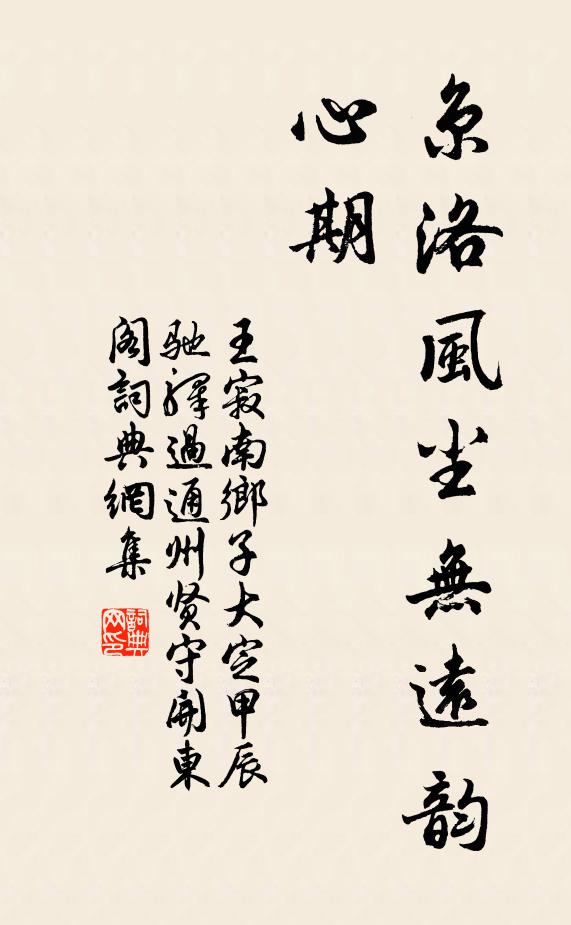 京洛風尘無遠韵
心期
王寂南鄉子大定甲辰
馳驛過通州賢守開東
閣詞典網集
詞典
网印